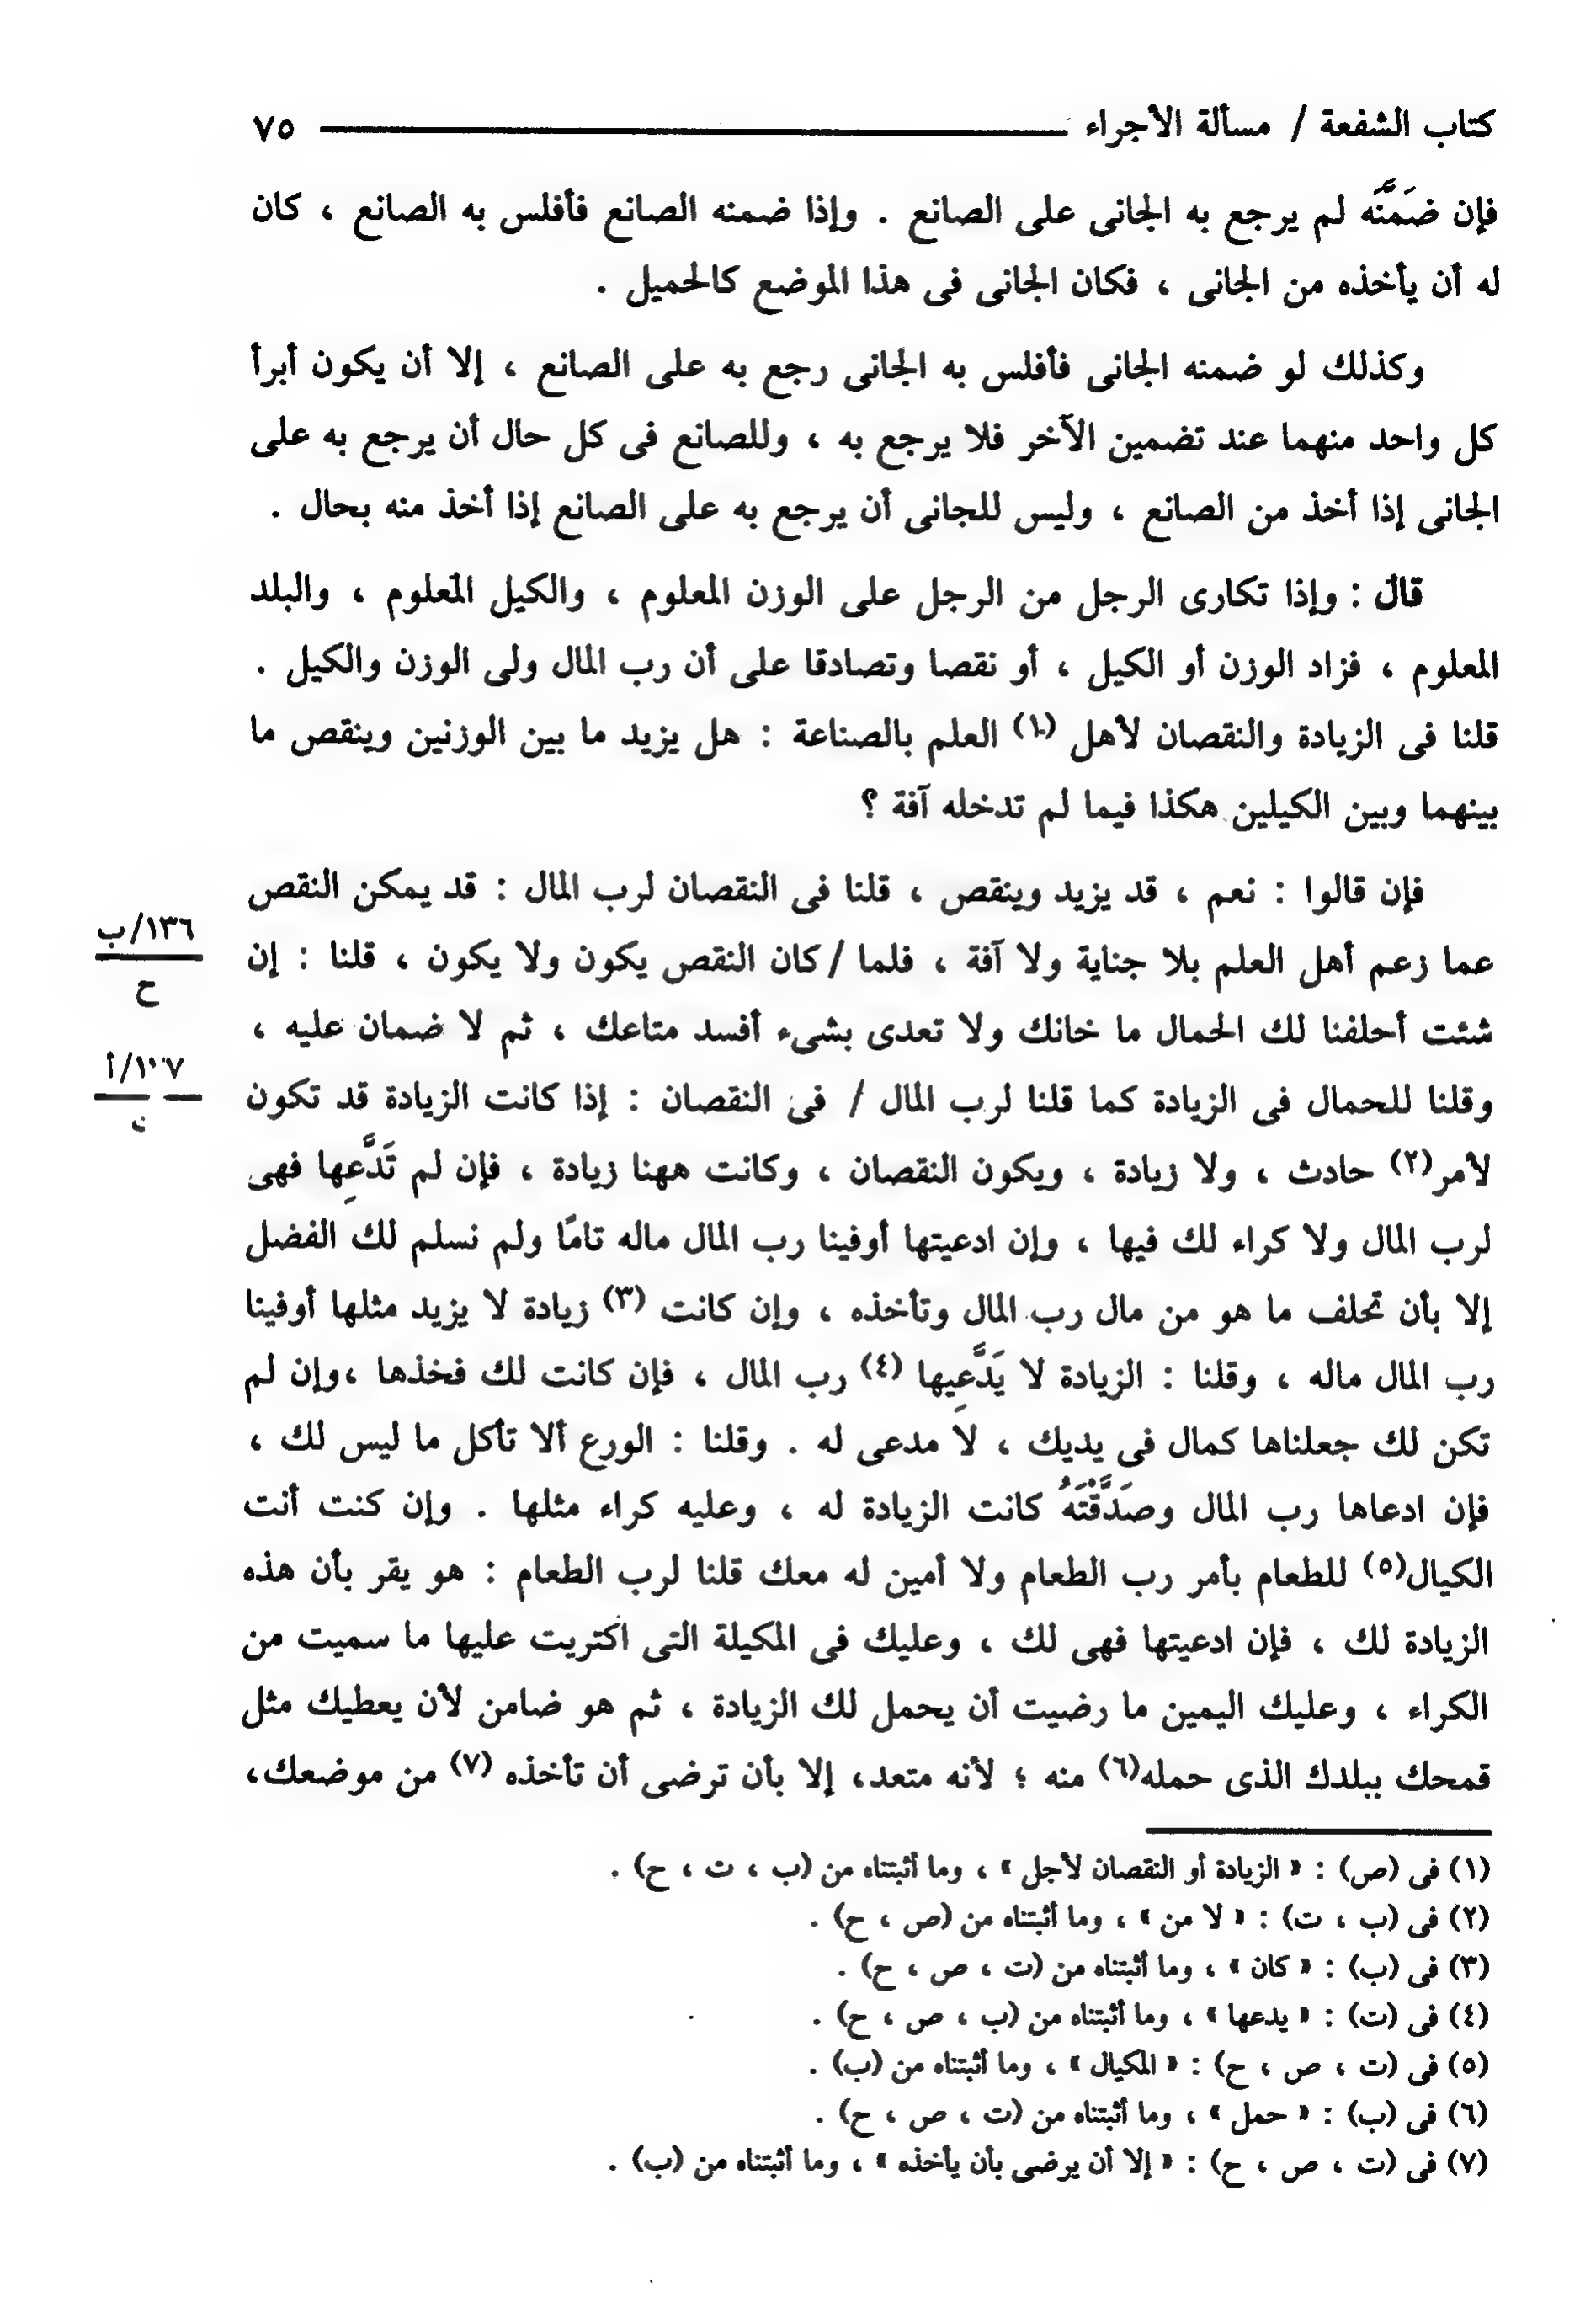 كتاب الشفعة / مسألة الأجراء ٧٥
فإن ضَمَّنَه لم يرجع به الجانى على الصانع . وإذا ضمنه الصانع فأفلس به الصانع ، كان
له أن يأخذه من الجانى ، فكان الجانى فى هذا الموضع كالحميل .
وكذلك لو ضمنه الجانى فأفلس به الجانى رجع به على الصانع ، إلا أن يكون أبرأ
كل واحد منهما عند تضمين الآخر فلا يرجع به ، وللصانع فى كل حال أن يرجع به على
الجانى إذا أخذ من الصانع ، وليس للجانى أن يرجع به على الصانع إذا أخذ منه بحال .
قال : وإذا تكارى الرجل من الرجل على الوزن المعلوم ، والكيل المعلوم ، والبلد
المعلوم ، فزاد الوزن أو الكيل ، أو نقصا وتصادقا على أن رب المال ولى الوزن والكيل .
قلنا فى الزيادة والنقصان لأهل (١) العلم بالصناعة : هل يزيد ما بين الوزنين وينقص ما
بينهما وبين الكيلين هكذا فيما لم تدخله آفة ؟
فإن قالوا : نعم ، قد يزيد وينقص ، قلنا فى النقصان لرب المال : قد يمكن النقص
عما زعم أهل العلم بلا جناية ولا آفة ، فلما / كان النقص يكون ولا يكون ، قلنا : إن
١٣٦/ب
ح
شئت أحلفنا لك الحمال ما خانك ولا تعدى بشىء أفسد متاعك ، ثم لا ضمان عليه ،
وقلنا للحمال فى الزيادة كما قلنا لرب المال / فى النقصان : إذا كانت الزيادة قد تكون
١٠٧/أ
لأمر(٢) حادث ، ولا زيادة ، ويكون النقصان ، وكانت ههنا زيادة ، فإن لم تَدَّعِها فهى
لرب المال ولا كراء لك فيها ، وإن ادعيتها أوفينا رب المال ماله تامًا ولم نسلم لك الفضل
إلا بأن تحلف ما هو من مال رب المال وتأخذه ، وإن كانت (٣) زيادة لا يزيد مثلها أوفينا
رب المال ماله ، وقلنا : الزيادة لا يَدَّعِيها (٤) رب المال ، فإن كانت لك فخذها ،وإن لم
تكن لك جعلناها كمال فى يديك ، لا مدعى له . وقلنا : الورع ألا تأكل ما ليس لك ،
فإن ادعاها رب المال وصَدَّقْتَهُ كانت الزيادة له ، وعليه كراء مثلها . وإن كنت أنت
الكيال(٥) للطعام بأمر رب الطعام ولا أمين له معك قلنا لرب الطعام : هو يقر بأن هذه
الزيادة لك ، فإن ادعيتها فهى لك ، وعليك فى المكيلة التى اكتريت عليها ما سميت من
الكراء ، وعليك اليمين ما رضيت أن يحمل لك الزيادة ، ثم هو ضامن لأن يعطيك مثل
قمحك ببلدك الذى حمله(٦) منه ؛ لأنه متعد، إلا بأن ترضى أن تأخذه (٧) من موضعك،
(١) فى (ص) : « الزيادة أو النقصان لأجل » ، وما أثبتناه من (ب ، ت ، ح) .
(٢) فى (ب ، ت) : « لا من » ، وما أثبتناه من (ص ، ح) .
(٣) فى (ب) : « كان » ، وما أثبتناه من (ت ، ص ، ح) .
(٤) فى (ت) : « يدعها » ، وما أثبتناه من (ب ، ص ، ح) .
(٥) فى (ت ، ص ، ح) : « المكيال » ، وما أثبتناه من (ب) .
(٦) فى (ب) : « حمل » ، وما أثبتناه من (ت ، ص ، ح) .
(٧) فى (ت ، ص ، ح) : « إلا أن يرضى بأن يأخذه » ، وما أثبتناه من (ب) .